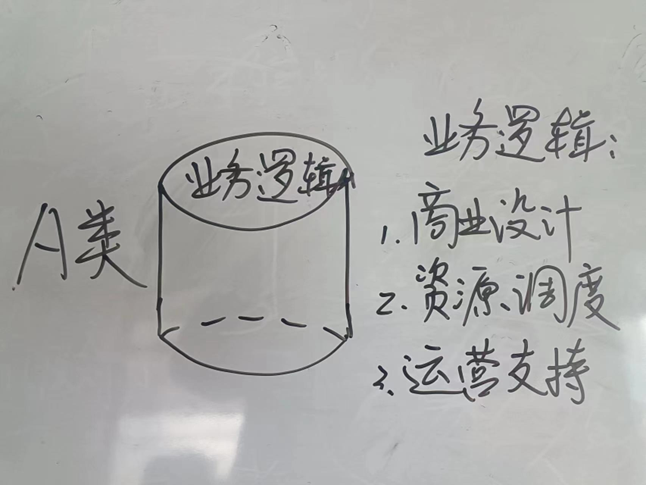 A类
业务逻辑
业务逻辑：
1.商业设计
2.资源、调度
3.运营支持